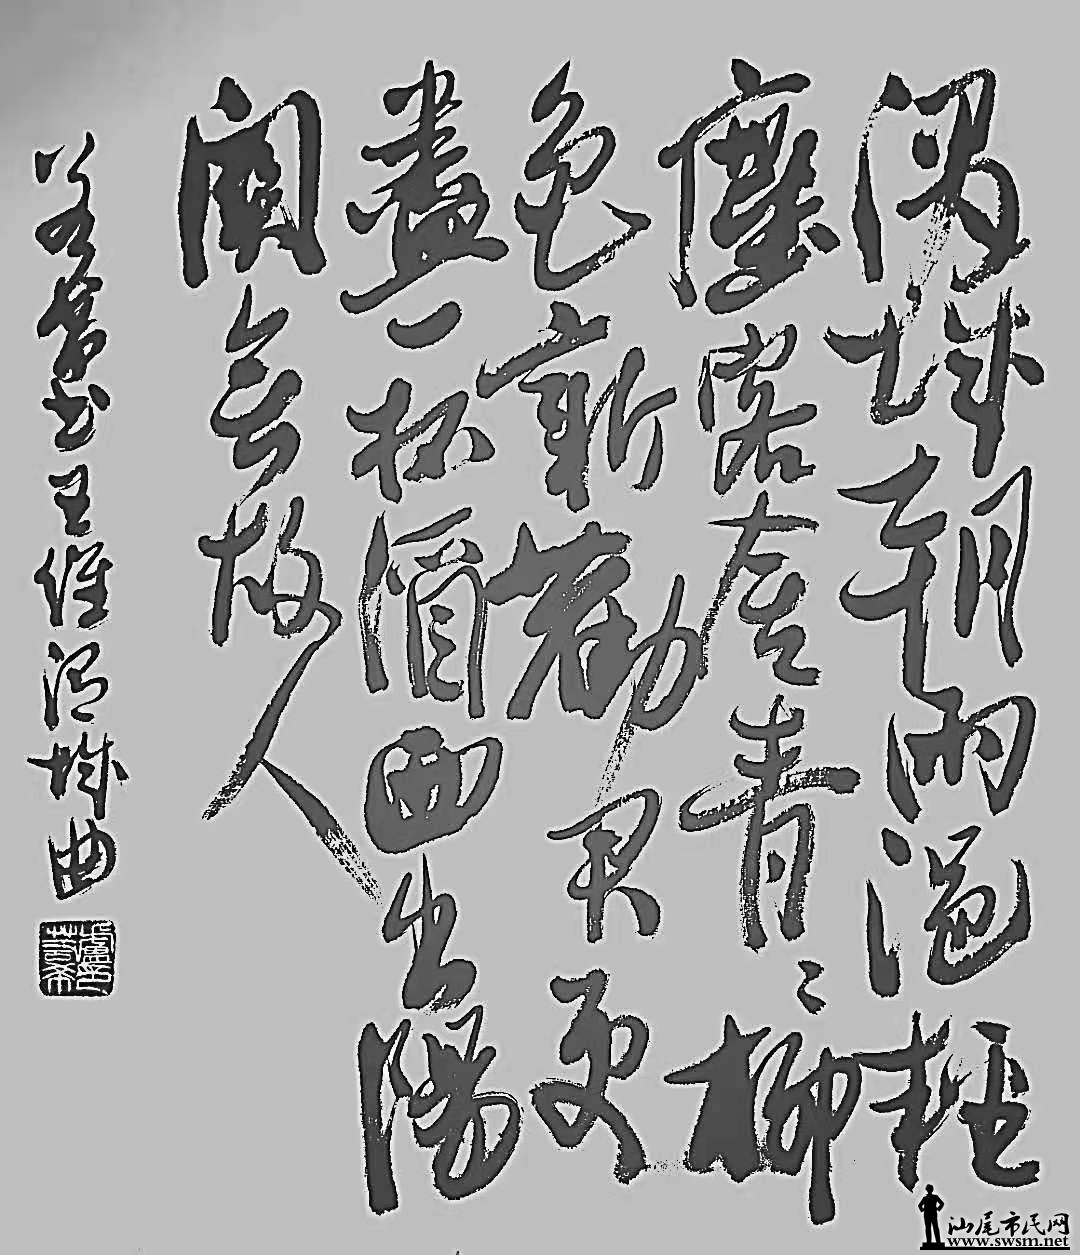 渭城朝雨浥輕
塵客舍青々柳
色新勸君更
盡一杯酒西出陽
關無故人
书王維渭城曲
汕尾市民网
www.swsm.net